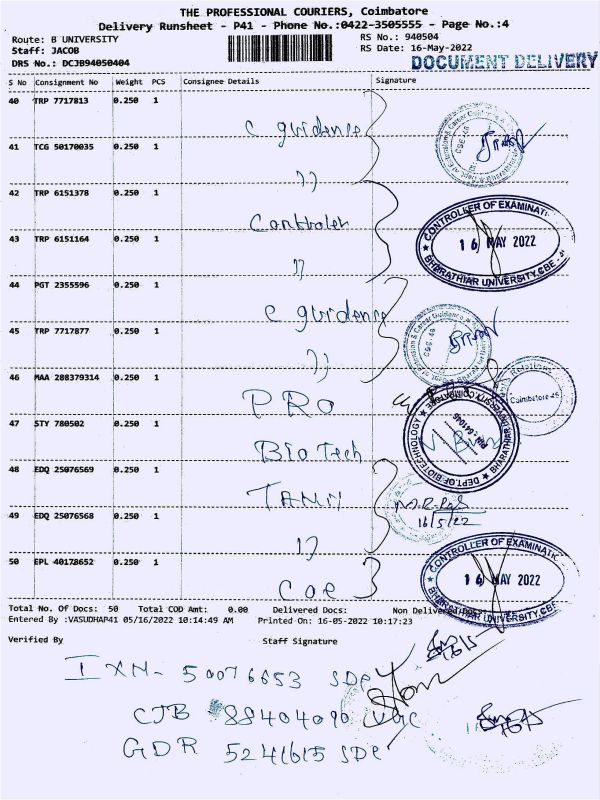 THE PROFESSIONAL COURIERS, Coimbatore
Delivery Runsheet - P41 - Phone No.:0422-3505555 - Page No.:4
Route: B UNIVERSITY RS No.: 940504
Staff: JACOB RS Date: 16-May-2022
DRS No.: DCJB94050404 DOCUMENT DELIVERY
S No Consignment No Weight PCS Consignee Details Signature
40 TRP 7717813 0.250 1
C guidence
41 TCG 50170035 0.250 1
,,
42 TRP 6151378 0.250 1
CONTROLLER OF EXAMINATI
Controler
43 TRP 6151164 0.250 1
16 MAY 2022
,,
BHARATHIAR UNIVERSITY, CBE
44 PGT 2355596 0.250 1
C guidence
45 TRP 7717877 0.250 1
,,
46 MAA 288379314 0.250 1
Relations
Coimbatore-46
PRO
47 STY 780502 0.250 1
DEPT. OF BIOTECHNOLOGY ★ BHARATHIAR UNIVERSITY, COIMBATORE
641046
Bio Tech
48 EDQ 25076569 0.250 1
TAMIL
16/5/22
49 EDQ 25076568 0.250 1
,,
CONTROLLER OF EXAMINATI
50 EPL 40178652 0.250 1
16 MAY 2022
COE
BHARATHIAR UNIVERSITY, CBE
Total No. Of Docs: 50 Total COD Amt: 0.00 Delivered Docs: Non Delivered Docs:
Entered By :VASUDHAP41 05/16/2022 10:14:49 AM Printed On: 16-05-2022 10:17:23
Verified By Staff Signature
IXN- 50076653 SDE
CJB 88404090 UGC
GDR 5241615 SDE